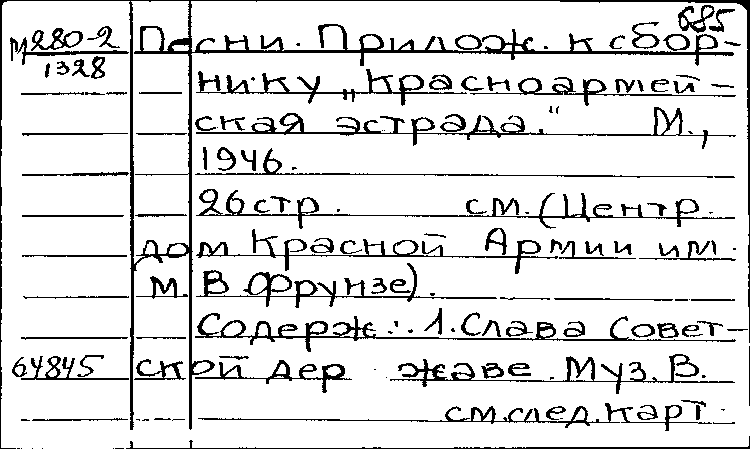 685
М280-2 Песни. Прилож. к сбор-
1328
нику „Красноармей-
ская эстрада." М.,
1946.
26 стр. см. (Центр.
дом Красной Армии им.
М. В Фрунзе).
Содерж.: 1. Слава Совет-
64845 ской дер жаве. Муз. В.
см. след. карт.